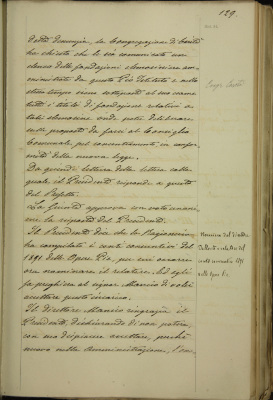 129
detta Provincia, la Congregazione di Carità
ha chiesto che le sia comunicato un
elenco delle fondazioni elemosiniere am-
ministrate da questo Pio Istituto e nello
stesso tempo viene sottoposti al suo esame
tutti i titoli di fondazione relativi a
tali elemosine onde poter deliberare
sulle proposte da farsi al Consiglio
Comunale pel concentramento, in confor-
mità della nuova legge.
Dà quindi lettura della lettera colla
quale il Presidente risponde a questa
del Prefetto.
La Giunta approva con voto unani-
me la risposta del Presidente.
Il Presidente dice che la Ragioneria
ha compilato i conti consuntivi del
1891 delle Opere Pie, per cui occorre
ora nominare il relatore. Ed egli
fa preghiera al signor Mancio di volere
accettare questo incarico.
Il direttore Mancio ringrazia il
Presidente, dichiarando di non potere,
con suo dispiacere accettare, perché
nuovo nella Amministrazione, l'in-
Nomina del
relatore del
1891
delle Opere Pie